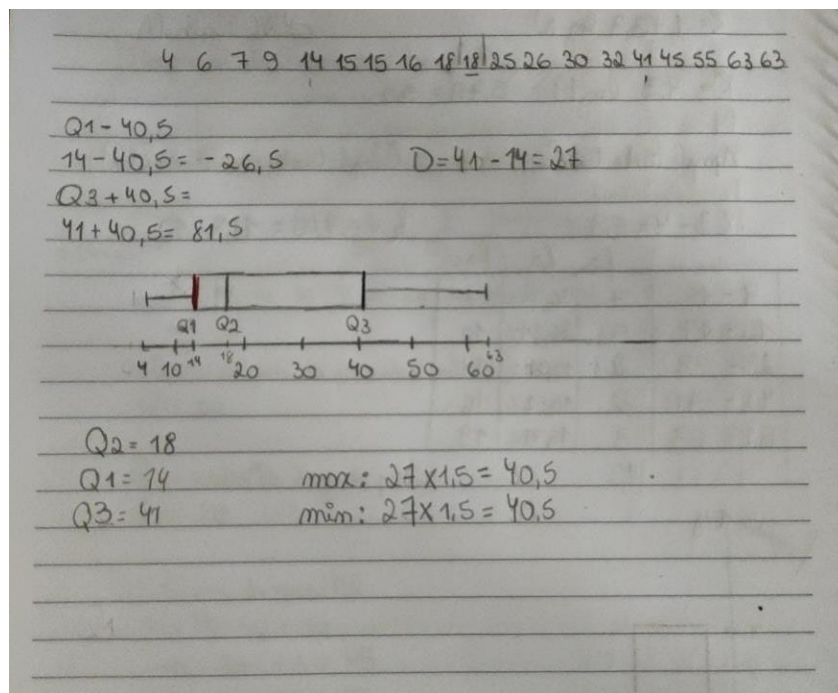 4 6 7 9 14 15 15 16 18 |18| 25 26 30 32 41 45 55 63 63
Q1 - 40,5
14 - 40,5 = - 26,5 D = 41 - 14 = 27
Q3 + 40,5 =
41 + 40,5 = 81,5
Q1 Q2 Q3
4 10 14 18 20 30 40 50 60 63
Q2 = 18
Q1 = 14 max: 27 x 1,5 = 40,5
Q3 = 41 min: 27 x 1,5 = 40,5